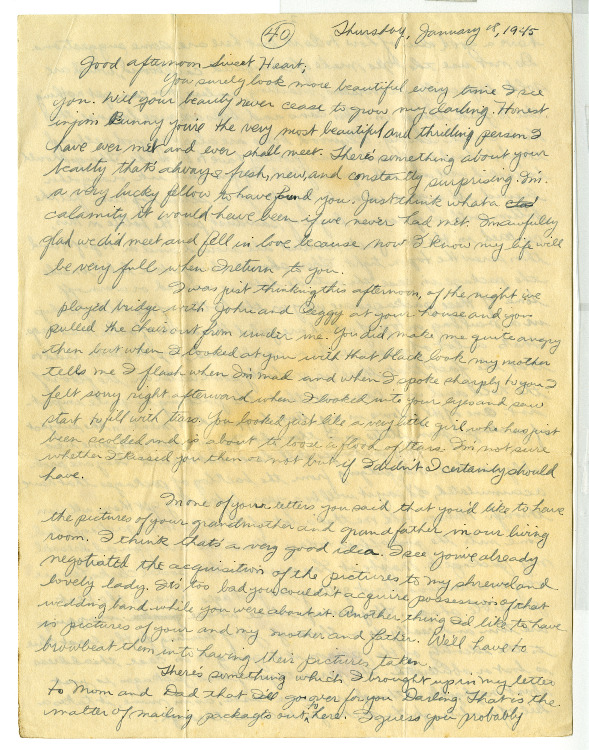 40
Thursday, January 18, 1945
Good afternoon Sweet Heart;
You surely look more beautiful every time I see
you. Will your beauty never cease to grow my darling. Honest
injom Bunny you're the very most beautiful and thrilling person I
have ever met and ever shall meet. There's something about your
beauty that's always fresh, new, and constantly surprising. I'm
a very lucky fellow to have found you. Just think what a
calamity it would have been if we never had met. I'm awfully
glad we did meet and fell in love because now I know my life will
be very full when I return to you.
I was just thinking this afternoon, of the night we
played bridge with John and Peggy at your house and you
pulled the chair out from under me. You did make me quite angry
then but when I looked at you with that black look my mother
tells me I flash when I'm mad and when I spoke sharply to you I
felt sorry right afterward when I looked into your eyes and saw
start to fill with tears. You looked just like a very little girl who has just
been scolded and is about to loose a flood of tears. I'm not sure
whether I kissed you then or not but if I didn't I certainly should
have.
In one of your letters you said that you'd like to have
the pictures of your grandmother and grandfather in our living
room. I think that's a very good idea. I see you've already
negotiated the acquisition of the pictures to my shrewd and
lovely lady. It's too bad you couldn't acquire possession of that
wedding band while you were about it. Another thing I'd like to have
is pictures of your and my mother and father. We'll have to
browbeat them into having their pictures taken.
There's something which I brought up in my letter
to Mom and Dad that I'll go over for you Darling. That is the
matter of mailing packages out to here. I guess you probably